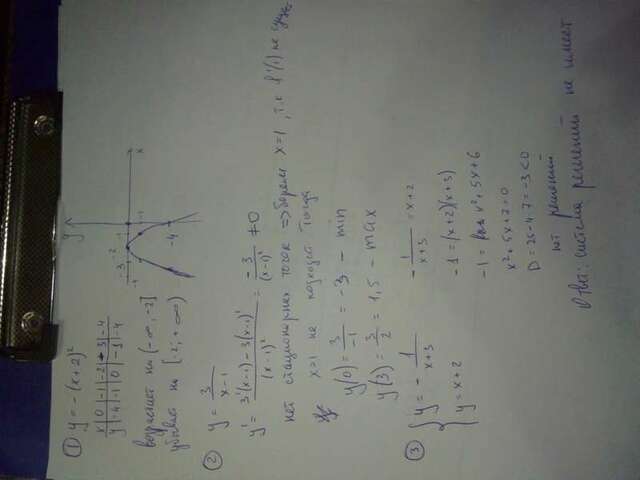 ① y = -(x+2)²
x | 0 | -1 | -2 | -3 | -4
y | -4 | -1 | 0 | -1 | -4
y
x
-3 -2 -1
-1
-4
возрастает на (-∞; -2]
убывает на [-2; +∞)
② y = 3/(x-1)
y' = (3'(x-1) - 3(x-1)')/(x-1)² = -3/(x-1)² ≠ 0
нет стационарных точек => берем x=1, т.к. f'(1) не сущ.
x=1 не подходит тогда
y(0) = 3/-1 = -3 - min
y(3) = 3/2 = 1,5 - max
③ { y = -1/(x+3)
{ y = x+2
-1/(x+3) = x+2
-1 = (x+2)(x+3)
-1 = x²+5x+6
x²+5x+7=0
D = 25-4·7 = -3 < 0
нет решений
Ответ: система решений не имеет